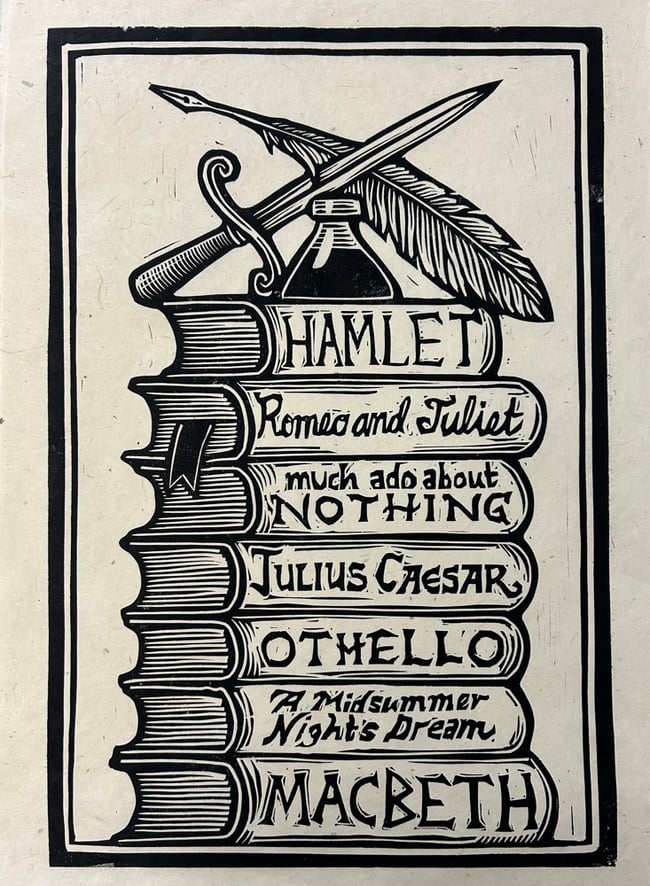 HAMLET
Romeo and Juliet
much ado about
NOTHING
JULIUS CAESAR
OTHELLO
A Midsummer
Night's Dream
MACBETH